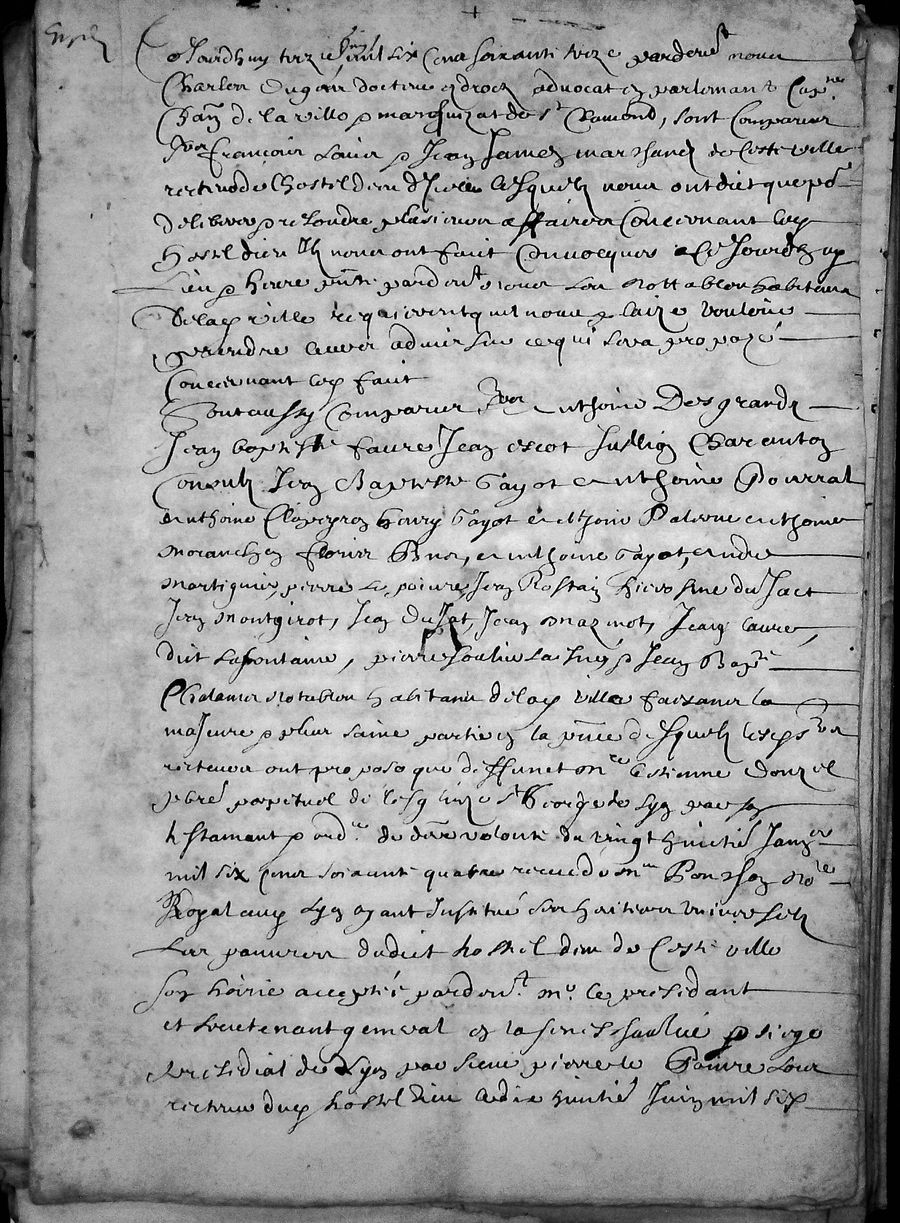 Cejourdhuy treze Juin mil six cens soixante treze pardevt nous
Charles Dugour docteur es droes advocat en parlemant Capne
Chan de la ville & marquizat de St Chamond, sont comparus
Srs François Lavia & Jean James marchands de Ceste ville
recteurs de lhostel dieu dicelle lesquels nous ont dict que pr
deliberer & resoudre plusieurs affaires Concernant led
hostel dieu Ilz nous ont fait Convocquer a Ce Jourdhuy
Lieu & heure pnte pardevt nous Les nottables habitans
de lad ville requierent quil nous plaize vouloir
prendre leur advis sur ce qui sera propozé
Concernant led fait
Sont aussy Comparus Srs Anthoine Desgrands
Jean baptiste faure Jean escot Jullien Charenton
Consuls Jean Baptiste Gayot Anthoine Pourrat
Anthoine Clapeyron henry Gayot Anthoine Palerne Anthoine
moranchon florier Brus, Anthoine Gayot, Andre
martignier pierre Le poivre, Jean Rostain hierosme du Jact
Jean montgirot, Jean Du Jat, Jean mazinot, Jean faure,
dict Lafontaine, pierre Soulier Laisné & Jean Bapte
Chalamer Notables habitans de lad ville faizant la
majeure & plus saine partie en la pnce desquels lesds Srs
recteurs ont propozé que deffunct mre Estienne Donzel
pbre perpetuel de lesglize St George de Lyon par son
testamant & ordce de dere volonté du vingt huictie Janver
mil six cens soixante quatre receu de me Ponchon Nore
Royal aud Lyon ayant Institué ses heritiers universels
Les pauvres dudict hostel dieu de Ceste ville
son hoirie acceptée pardevt mr le presidant
et Lieutenant general en la seneschaulcé & siege
presidial de Lyon par sieur pierre le Poivre Lors
recteur dud hostel Dieu le dix huictie Juin mil six